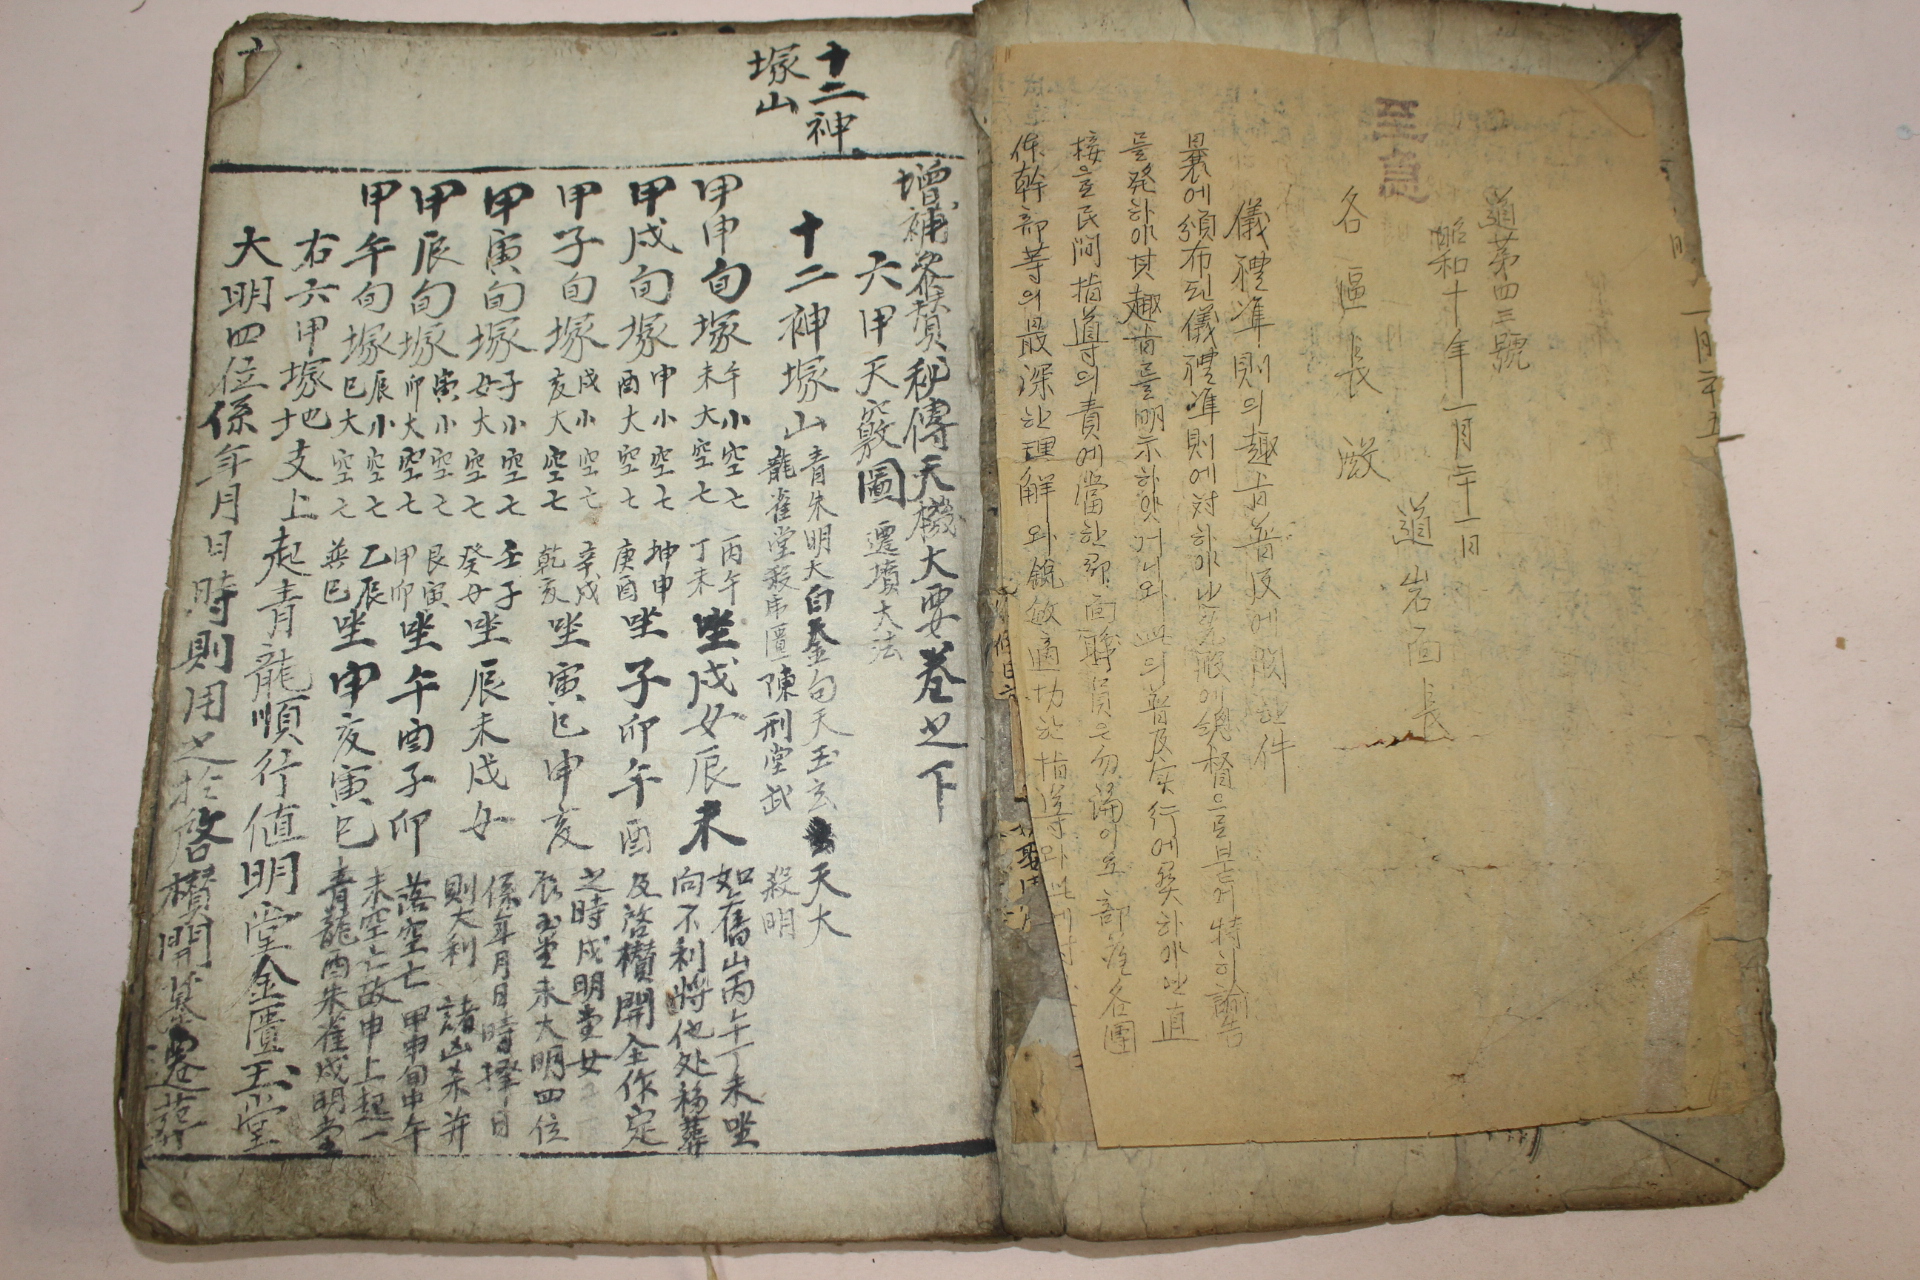 至急
道第四三號
昭和十年一月二十一日
道岩面長
各區長殿
儀禮準則의趣旨普及에關한件
曩에頒布된儀禮準則에対하야는先般에總督으로붙어特히諭告
를発하야其趣旨를明示하얏거니와此의普及実行에関하야는直
接으로民間指導의責에當한郡面職員은勿論이요部落各團
体幹部等의最深한理解와銳敏適切한指導와此에対
增補參贊秘傳天機大要卷之下
六甲天竅圖 遷墳大法
十二神
塚山
十二神塚山
青朱明天白金句天玉玄 天大
龍雀堂殺席匱陳刑堂武 殺明
甲申旬塚 午小空亡 未大空亡 丙午 丁未 坐戌丑辰未
甲戌旬塚 申小空亡 酉大空亡 坤申 庚酉 坐子卯午酉
甲子旬塚 戌小空亡 亥大空亡 辛戌 乾亥 坐寅巳申亥
甲寅旬塚 子小空亡 丑大空亡 壬子 癸丑 坐辰未戌丑
甲辰旬塚 寅小空亡 卯大空亡 艮寅 甲卯 坐午酉子卯
甲午旬塚 辰小空亡 巳大空亡 乙辰 巽巳 坐申亥寅巳
如舊山丙午丁未坐
向不利將他処移葬
及啓欑開金作定
之時戌明堂丑
辰玉堂未大明四位
係年月日時擇日
則大利 諸凶未并
落空亡 甲申旬中午
未空亡故申上起一
青龍酉朱雀戌明堂
右六甲塚地支上起青龍順行値明堂金匱玉堂
大明四位係年月日時則用之於啓欑開墓遷葬